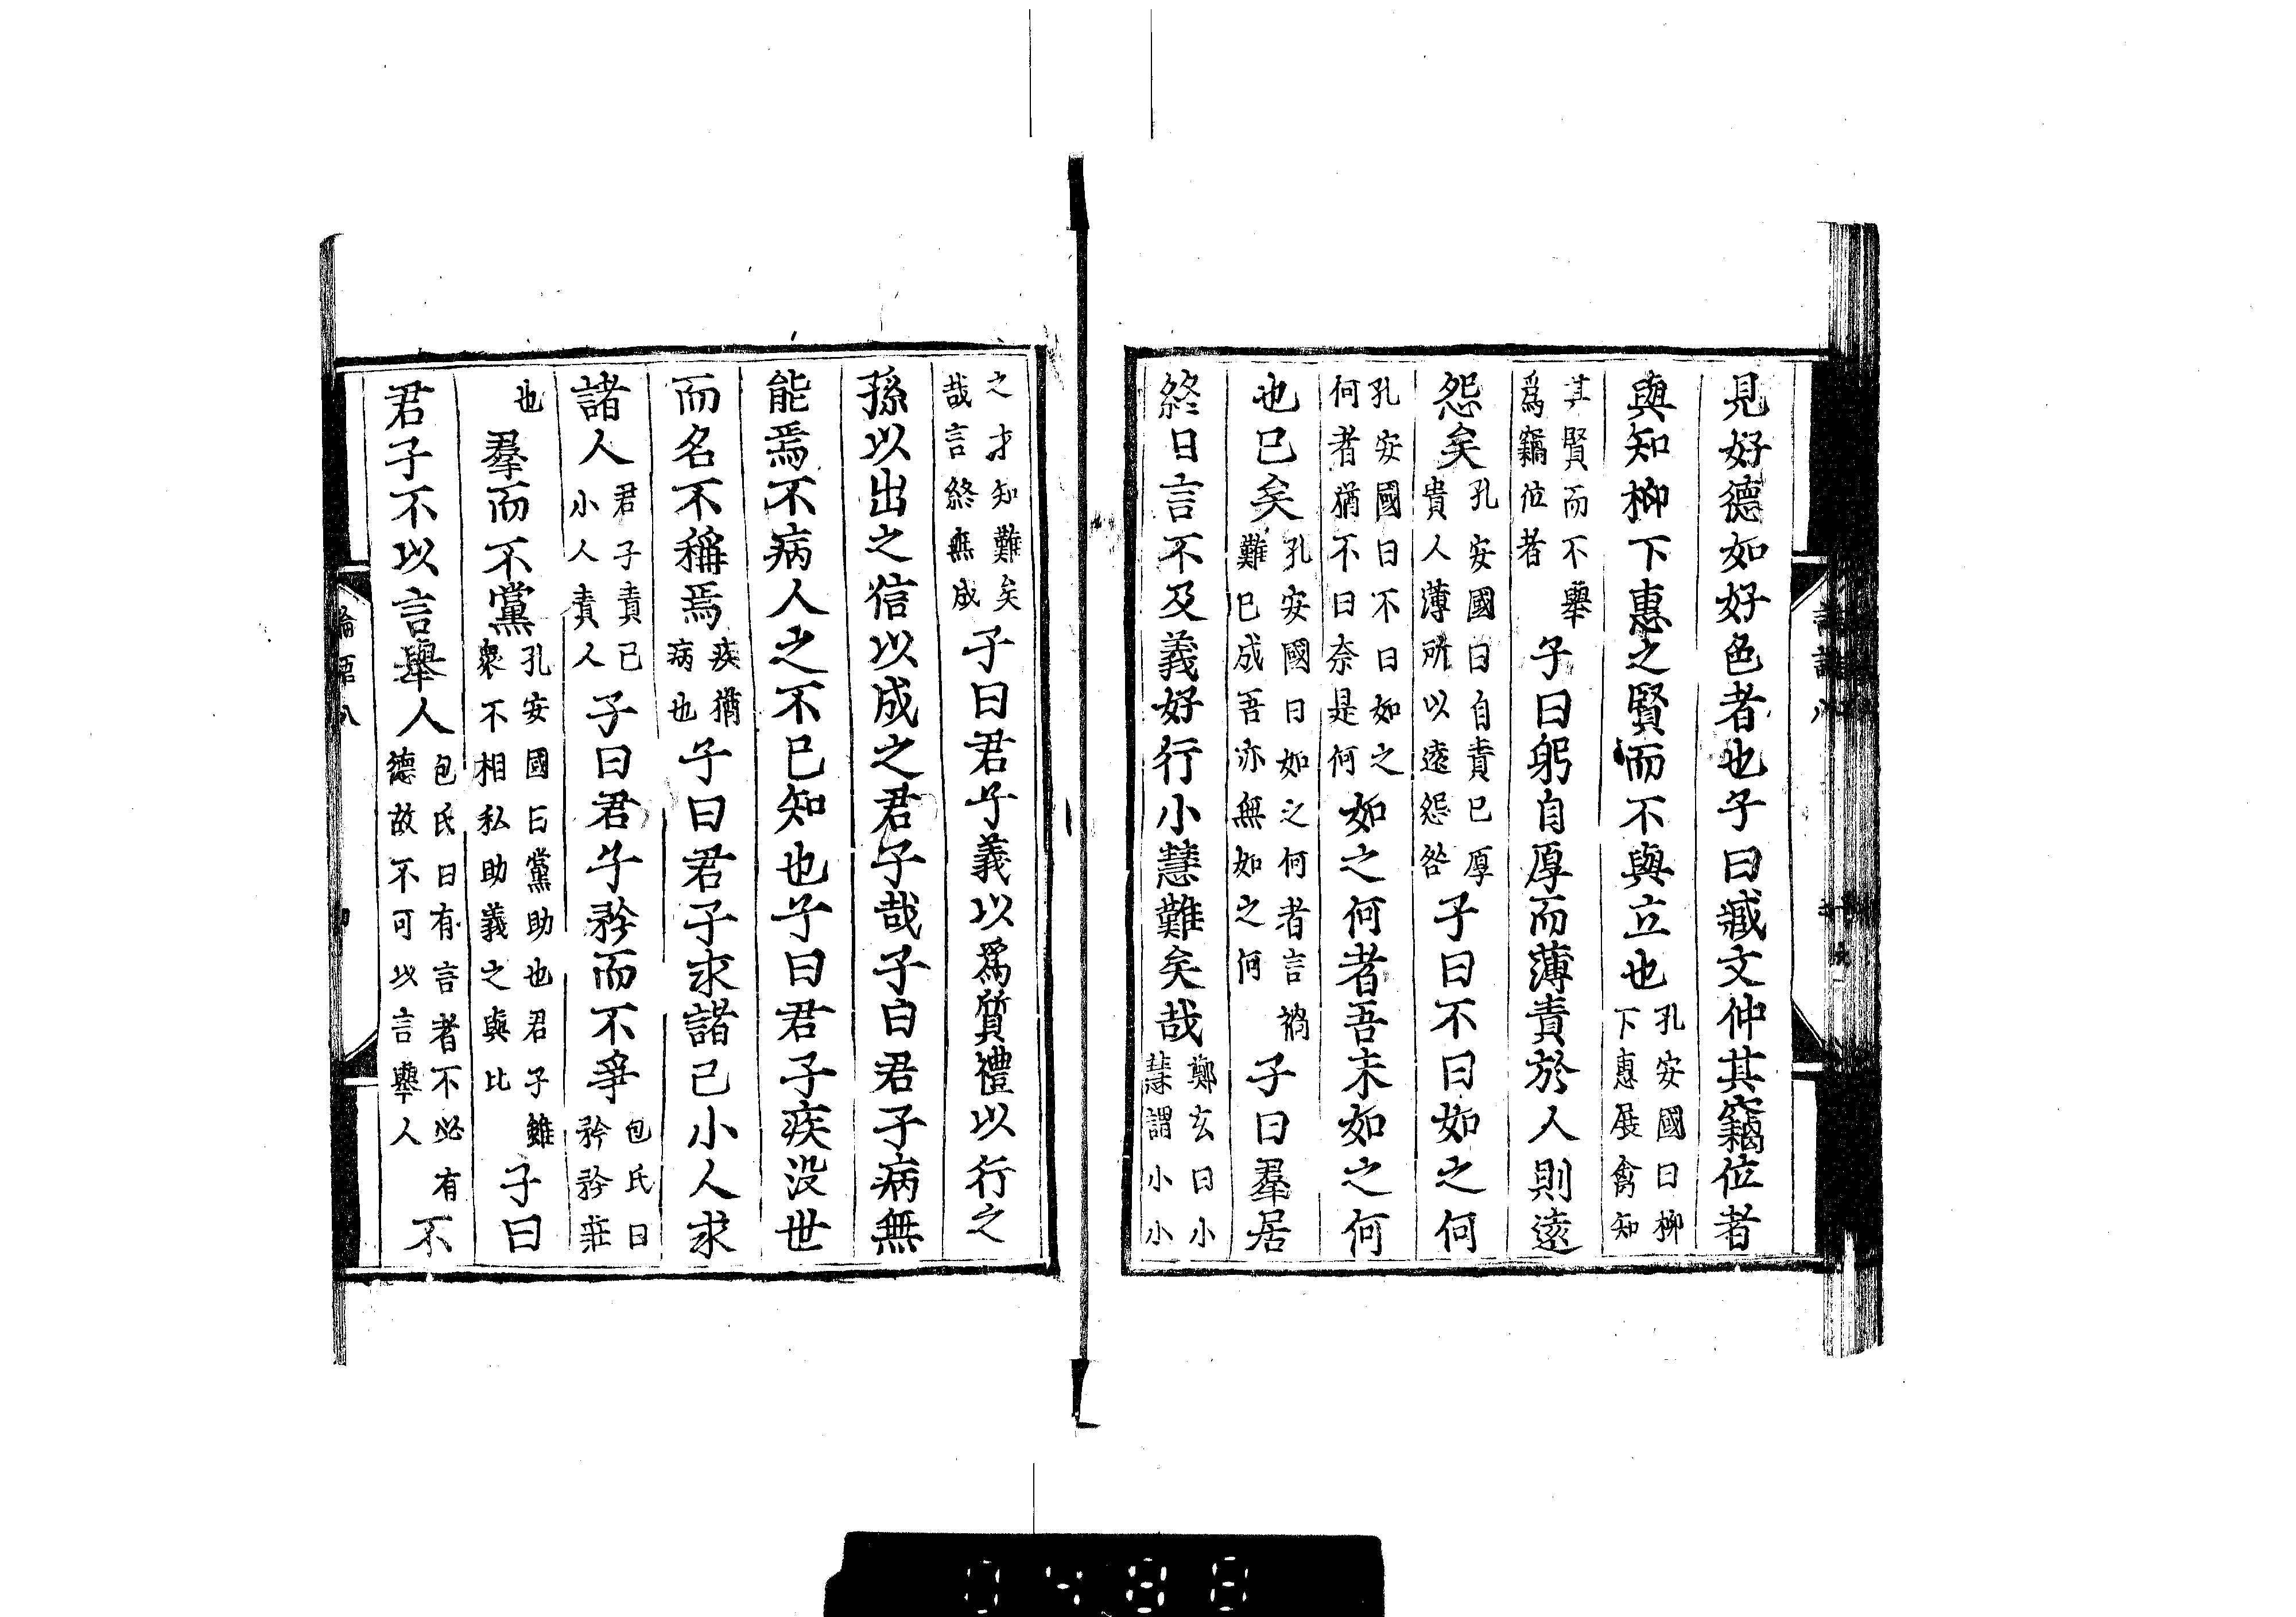 見好德如好色者也子曰臧文仲其竊位者
與知柳下惠之賢而不與立也孔安國曰柳下惠展禽知
其賢而不舉爲竊位者子曰躬自厚而薄責於人則遠
怨矣孔安國曰自責己厚責人薄所以遠怨咎子曰不曰如之何
孔安國曰不曰如之何者猶不曰奈是何如之何者吾末如之何
也已矣孔安國曰如之何者言禍難已成吾亦無如之何子曰羣居
終日言不及義好行小慧難矣哉鄭玄曰小慧謂小小
之才知難矣哉言終無成子曰君子義以爲質禮以行之
孫以出之信以成之君子哉子曰君子病無
能焉不病人之不己知也子曰君子疾没世
而名不稱焉疾猶病也子曰君子求諸己小人求
諸人君子責己小人責人子曰君子矜而不爭包氏曰矜矜莊
也羣而不黨孔安國曰黨助也君子雖衆不相私助義之與比子曰
君子不以言舉人包氏曰有言者不必有德故不可以言舉人不
論語八
0488